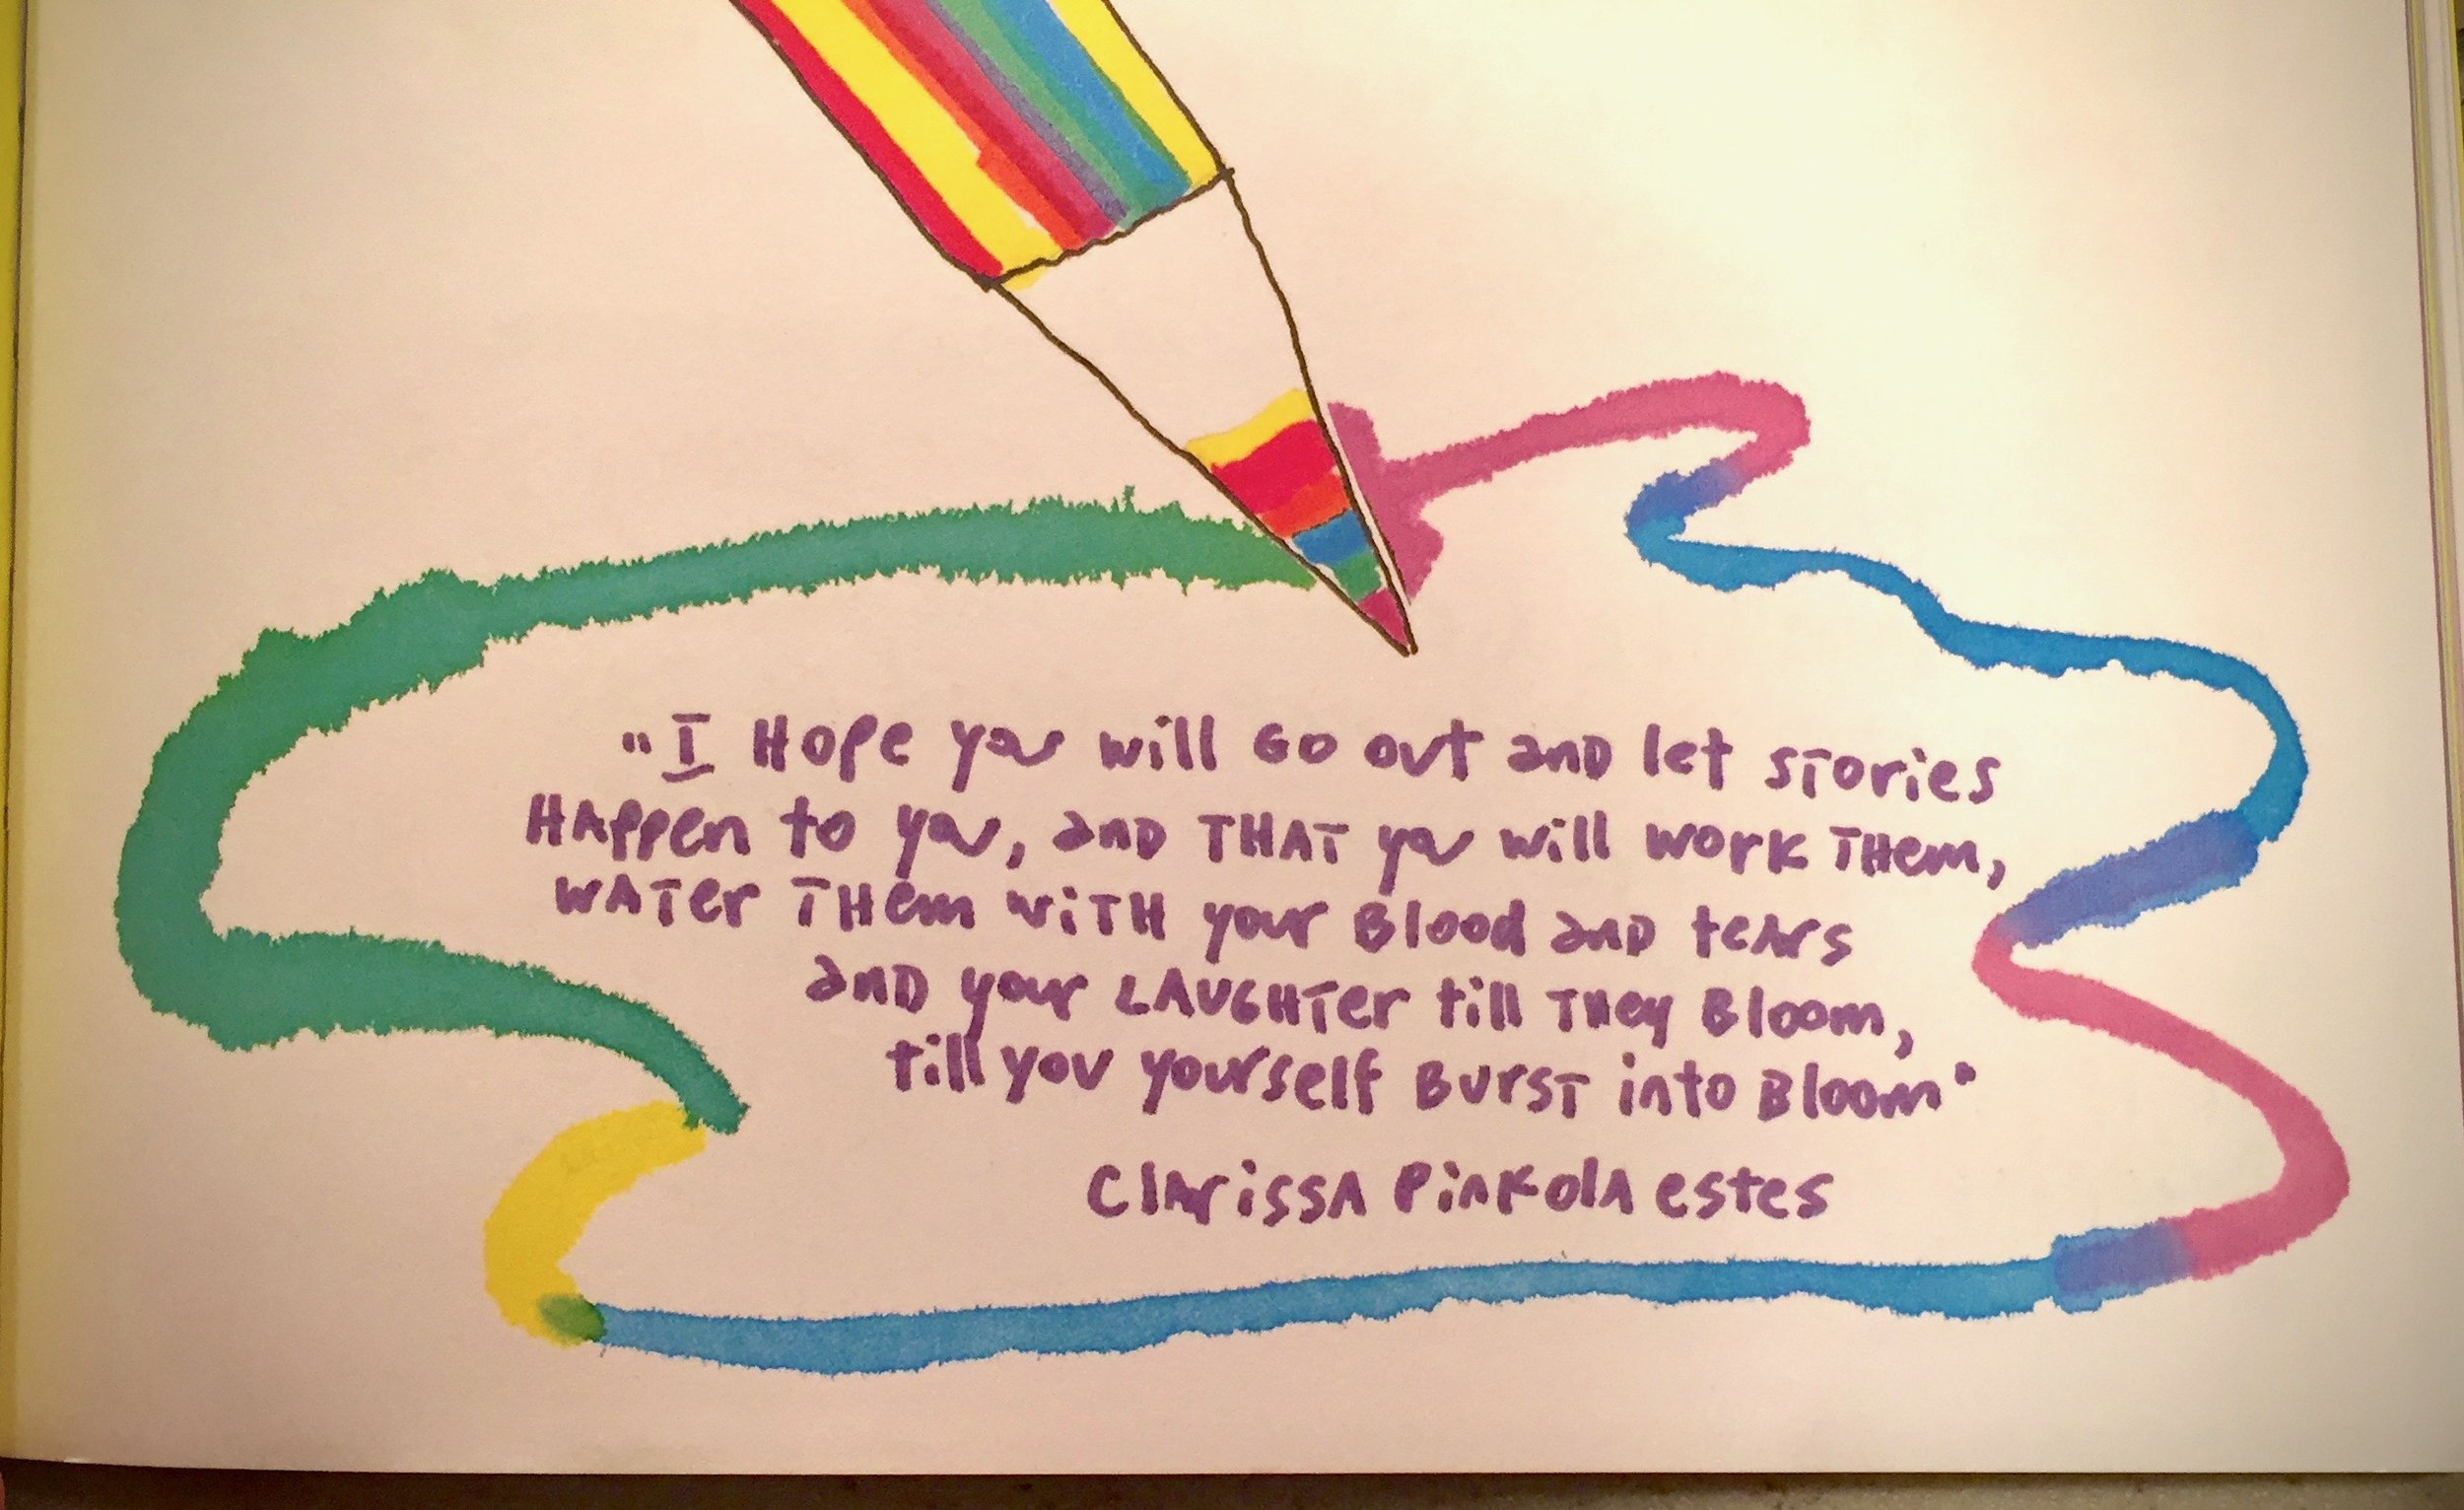 "I Hope you will Go out and let stories
Happen to you, and THAT you will work THem,
WATer THem wiTH your Blood and teArs
and your LAUGHTer till THey Bloom,
till you yourself BursT into Bloom"
ClArissA PinKolA estes